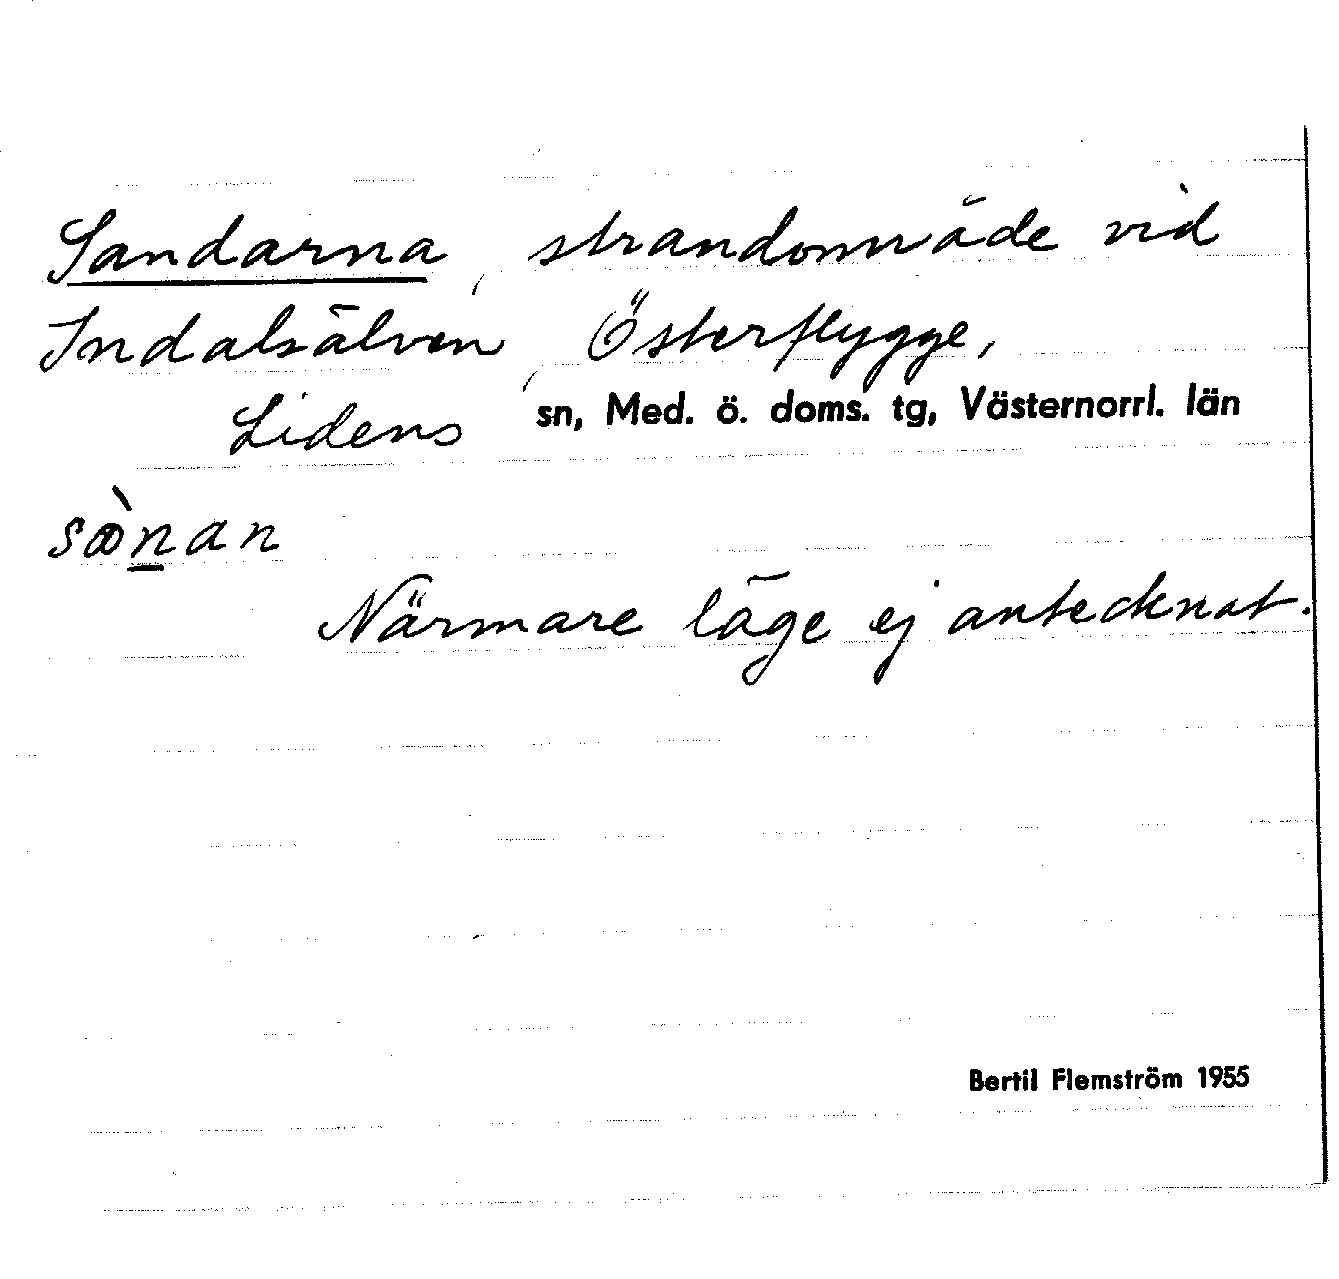 Sandarna, strandområde vid
Indalsälven, Österflygge,
Lidens sn, Med. ö. doms. tg, Västernorrl. län
Närmare läge ej antecknat.
Bertil Flemström 1955